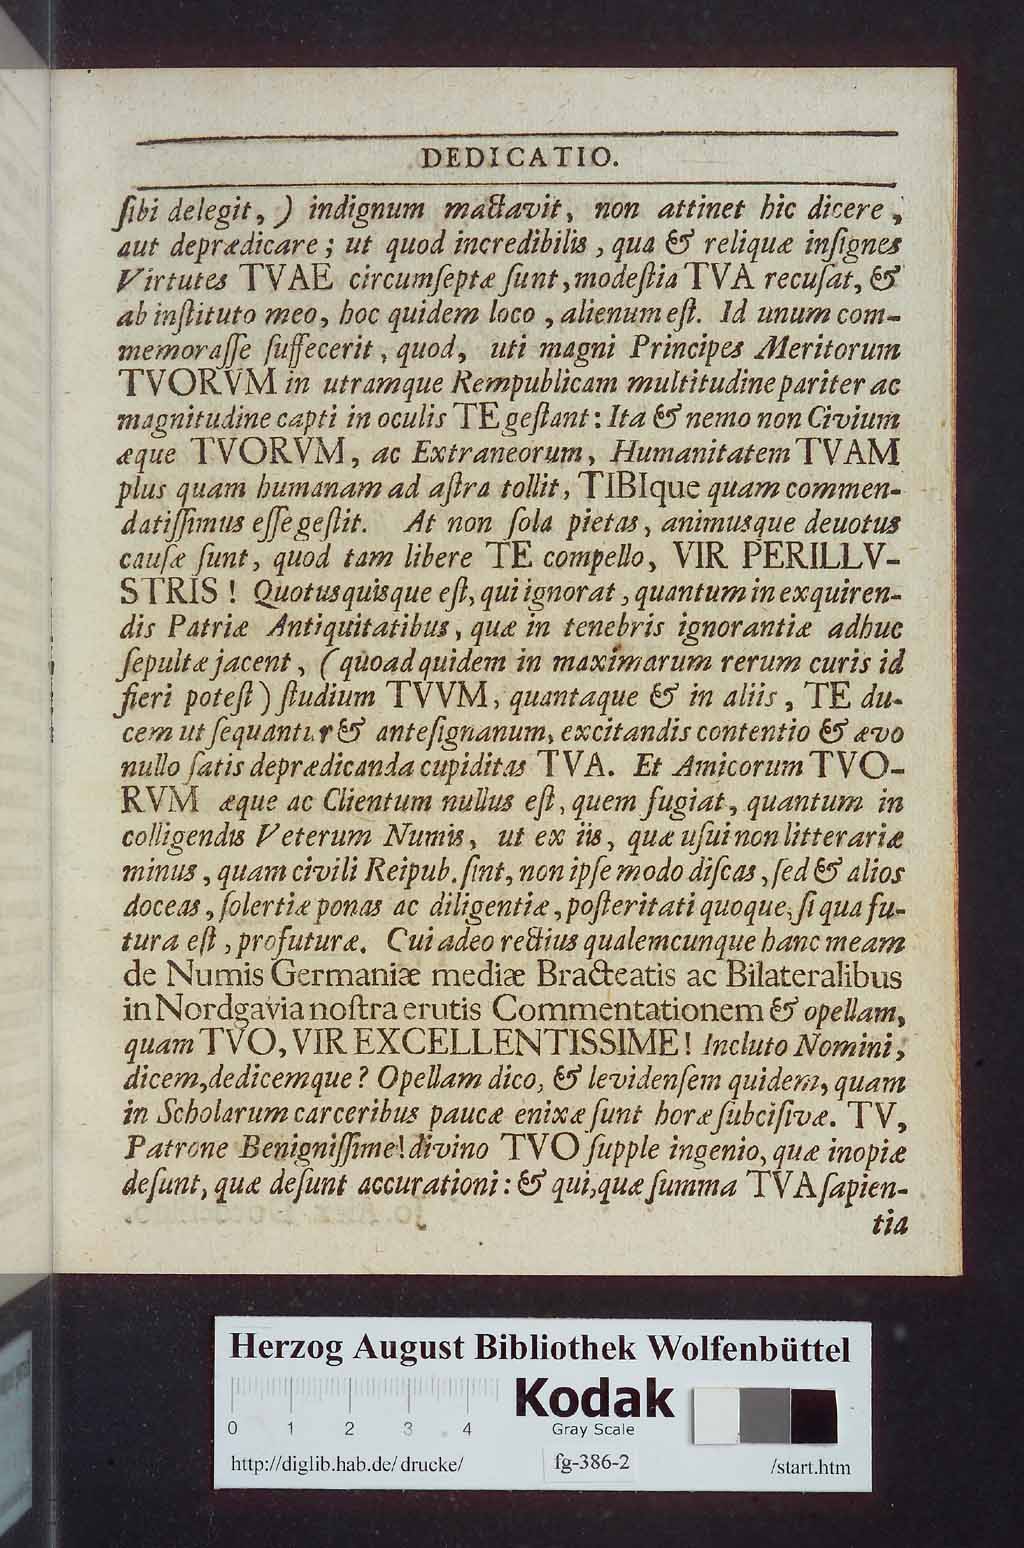 DEDICATIO.
ſibi delegit, ) indignum mactavit, non attinet hic dicere,
aut deprædicare; ut quod incredibilis, qua & reliquæ inſignes
Virtutes TVAE circumſeptæ ſunt, modeſtia TVA recuſat, &
ab inſtituto meo, hoc quidem loco, alienum eſt. Id unum com-
memoraſſe ſuffecerit, quod, uti magni Principes Meritorum
TVORVM in utramque Rempublicam multitudine pariter ac
magnitudine capti in oculis TE geſtant: Ita & nemo non Civium
æque TVORVM, ac Extraneorum, Humanitatem TVAM
plus quam humanam ad aſtra tollit, TIBIque quam commen-
datiſſimus eſſe geſtit. At non ſola pietas, animusque deuotus
cauſæ ſunt, quod tam libere TE compello, VIR PERILLV-
STRIS! Quotusquisque eſt, qui ignorat, quantum in exquiren-
dis Patriæ Antiquitatibus, quæ in tenebris ignorantiæ adhuc
ſepultæ jacent, (quoad quidem in maximarum rerum curis id
fieri poteſt) ſtudium TVVM, quantaque & in aliis, TE du-
cem ut ſequantur & anteſignanum, excitandis contentio & ævo
nullo ſatis deprædicanda cupiditas TVA. Et Amicorum TVO-
RVM æque ac Clientum nullus eſt, quem fugiat, quantum in
colligendis Veterum Numis, ut ex iis, quæ uſui non litterariæ
minus, quam civili Reipub. ſint, non ipſe modo diſcas, ſed & alios
doceas, ſolertiæ ponas ac diligentiæ, poſteritati quoque, ſi qua fu-
tura eſt, profuturæ. Cui adeo rectius qualemcunque hanc meam
de Numis Germaniæ mediæ Bracteatis ac Bilateralibus
in Nordgavia noſtra erutis Commentationem & opellam,
quam TVO, VIR EXCELLENTISSIME! Incluto Nomini,
dicem, dedicemque? Opellam dico, & levidenſem quidem, quam
in Scholarum carceribus paucæ enixæ ſunt horæ ſubciſivæ. TV,
Patrone Benigniſſime! divino TVO ſupple ingenio, quæ inopiæ
deſunt, quæ deſunt accurationi: & qui, quæ ſumma TVA ſapien-
tia
Herzog August Bibliothek Wolfenbüttel
0 1 2 3 4
Kodak
Gray Scale
http://diglib.hab.de/drucke/
fg-386-2
/start.htm